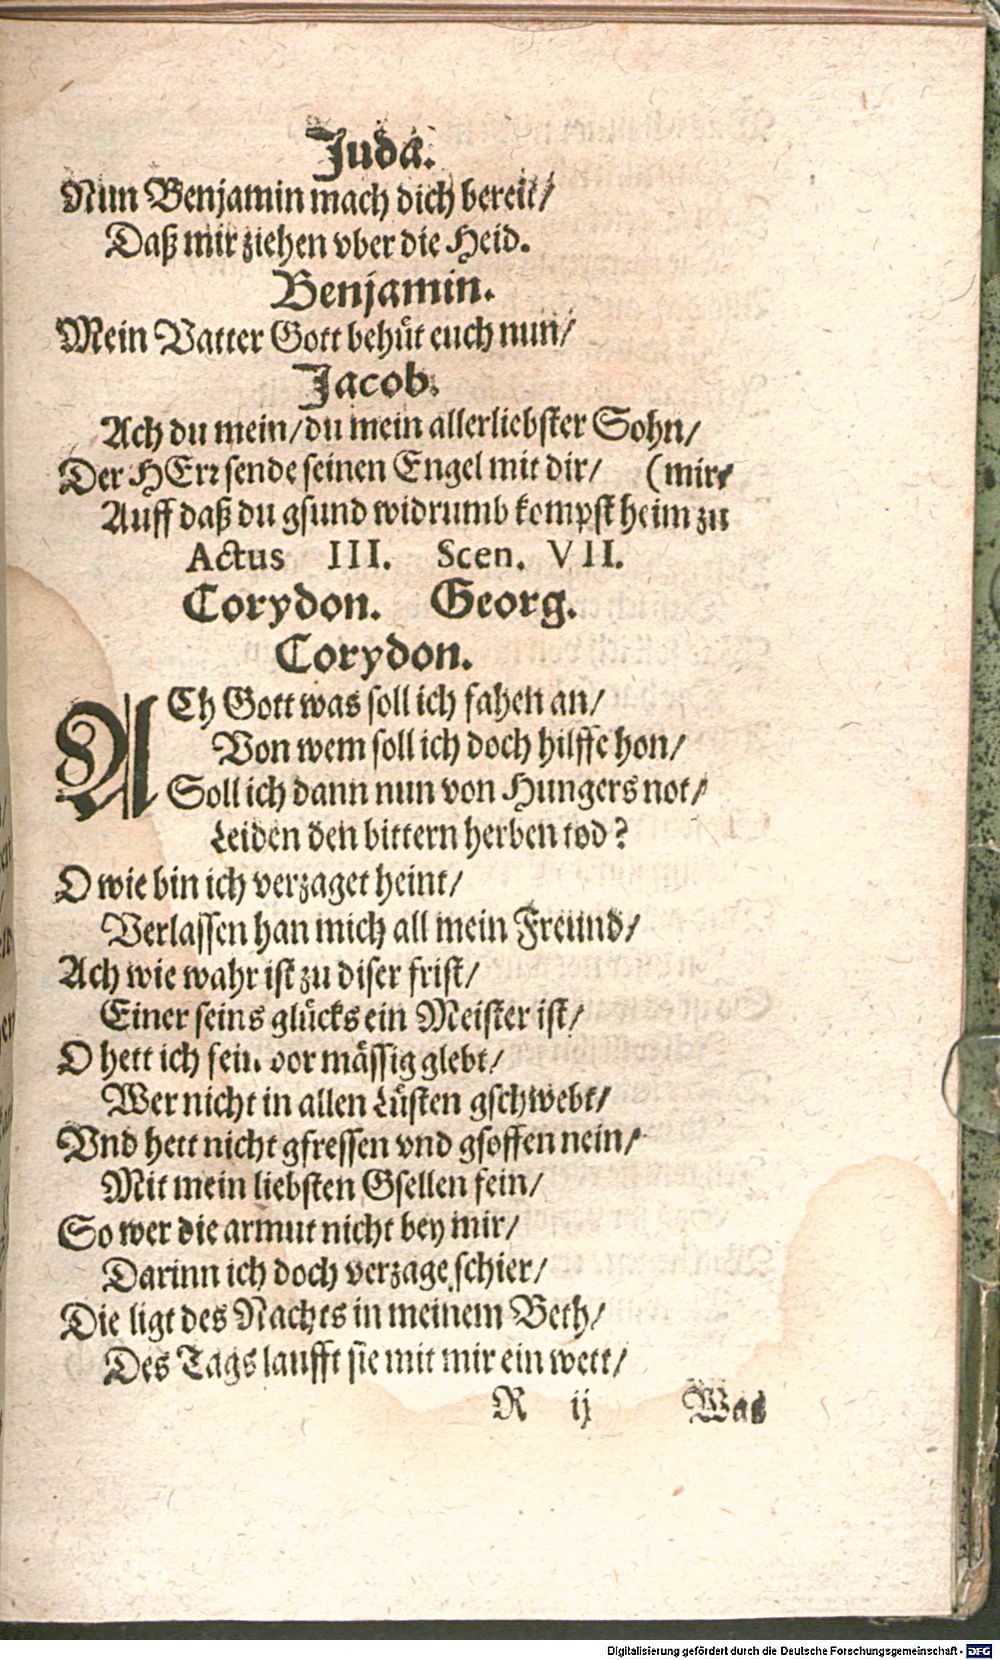 Juda.
Nun Benjamin mach dich bereit/
Daß mir ziehen vber die Heid.
Benjamin.
Mein Vatter Gott behüt euch nun/
Jacob.
Ach du mein/du mein allerliebster Sohn/
Der HErr sende seinen Engel mit dir/ (mir
Auff daß du gsund widrumb kompst heim zu
Actus III. Scen. VII.
Corydon. Georg.
Corydon.
ACh Gott was soll ich fahen an/
Von wem soll ich doch hilffe hon/
Soll ich dann nun von Hungers not/
Leiden den bittern herben tod?
O wie bin ich verzaget heint/
Verlassen han mich all mein Freund/
Ach wie wahr ist zu diser frist/
Einer seins glücks ein Meister ist/
O hett ich fein vor mässig glebt/
Wer nicht in allen Lüsten gschwebt/
Vnd hett nicht gfressen vnd gsoffen nein/
Mit mein liebsten Gsellen fein/
So wer die armut nicht bey mir/
Darinn ich doch verzage schier/
Die ligt des Nachts in meinem Beth/
Des Tags laufft sie mit mir ein wett/
R ij Was
Digitalisierung gefördert durch die Deutsche Forschungsgemeinschaft - DFG